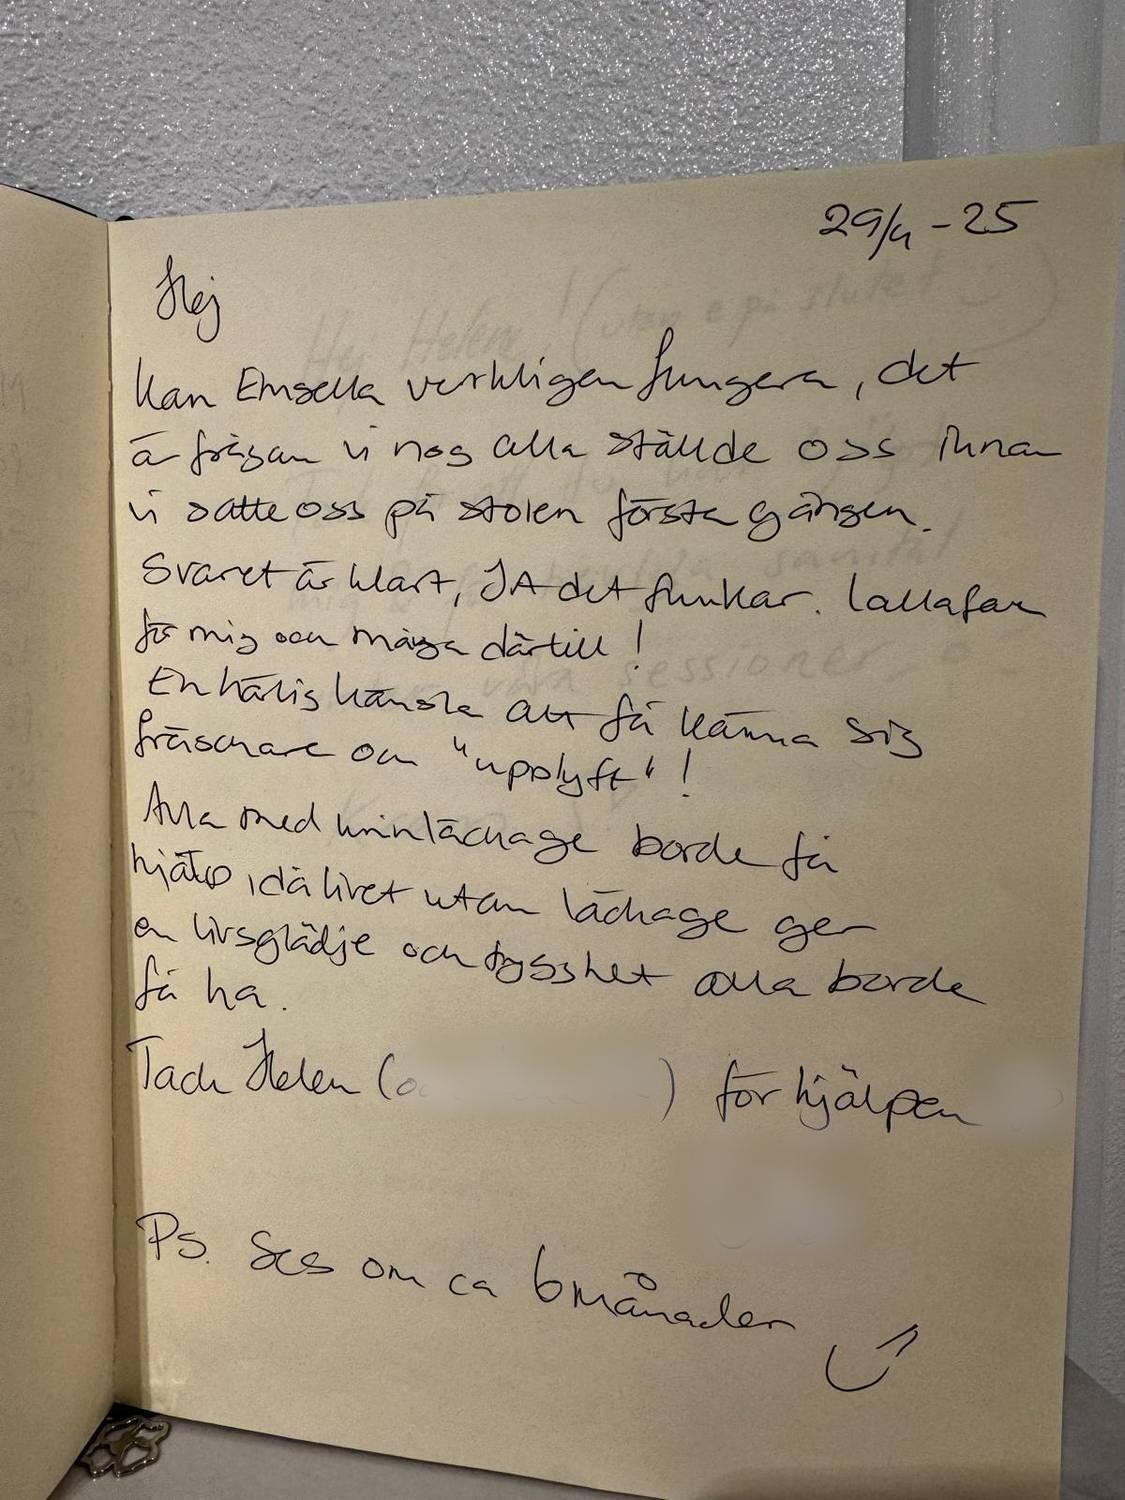 29/4 - 25
Hej
Kan Emsella verkligen fungera, det
är frågan vi nog alla ställde oss innan
vi satte oss på stolen första gången.
Svaret är klart, JA det funkar. Iallafall
för mig och många därtill!
En härlig känsla att få känna sig
fräschare och "upplyft"!
Alla med urinläckage borde få
hjälp, då livet utan läckage ger
en livsglädje och trygghet alla borde
få ha.
Tack Helen ( ) för hjälpen
Ps. Ses om ca 6 månader